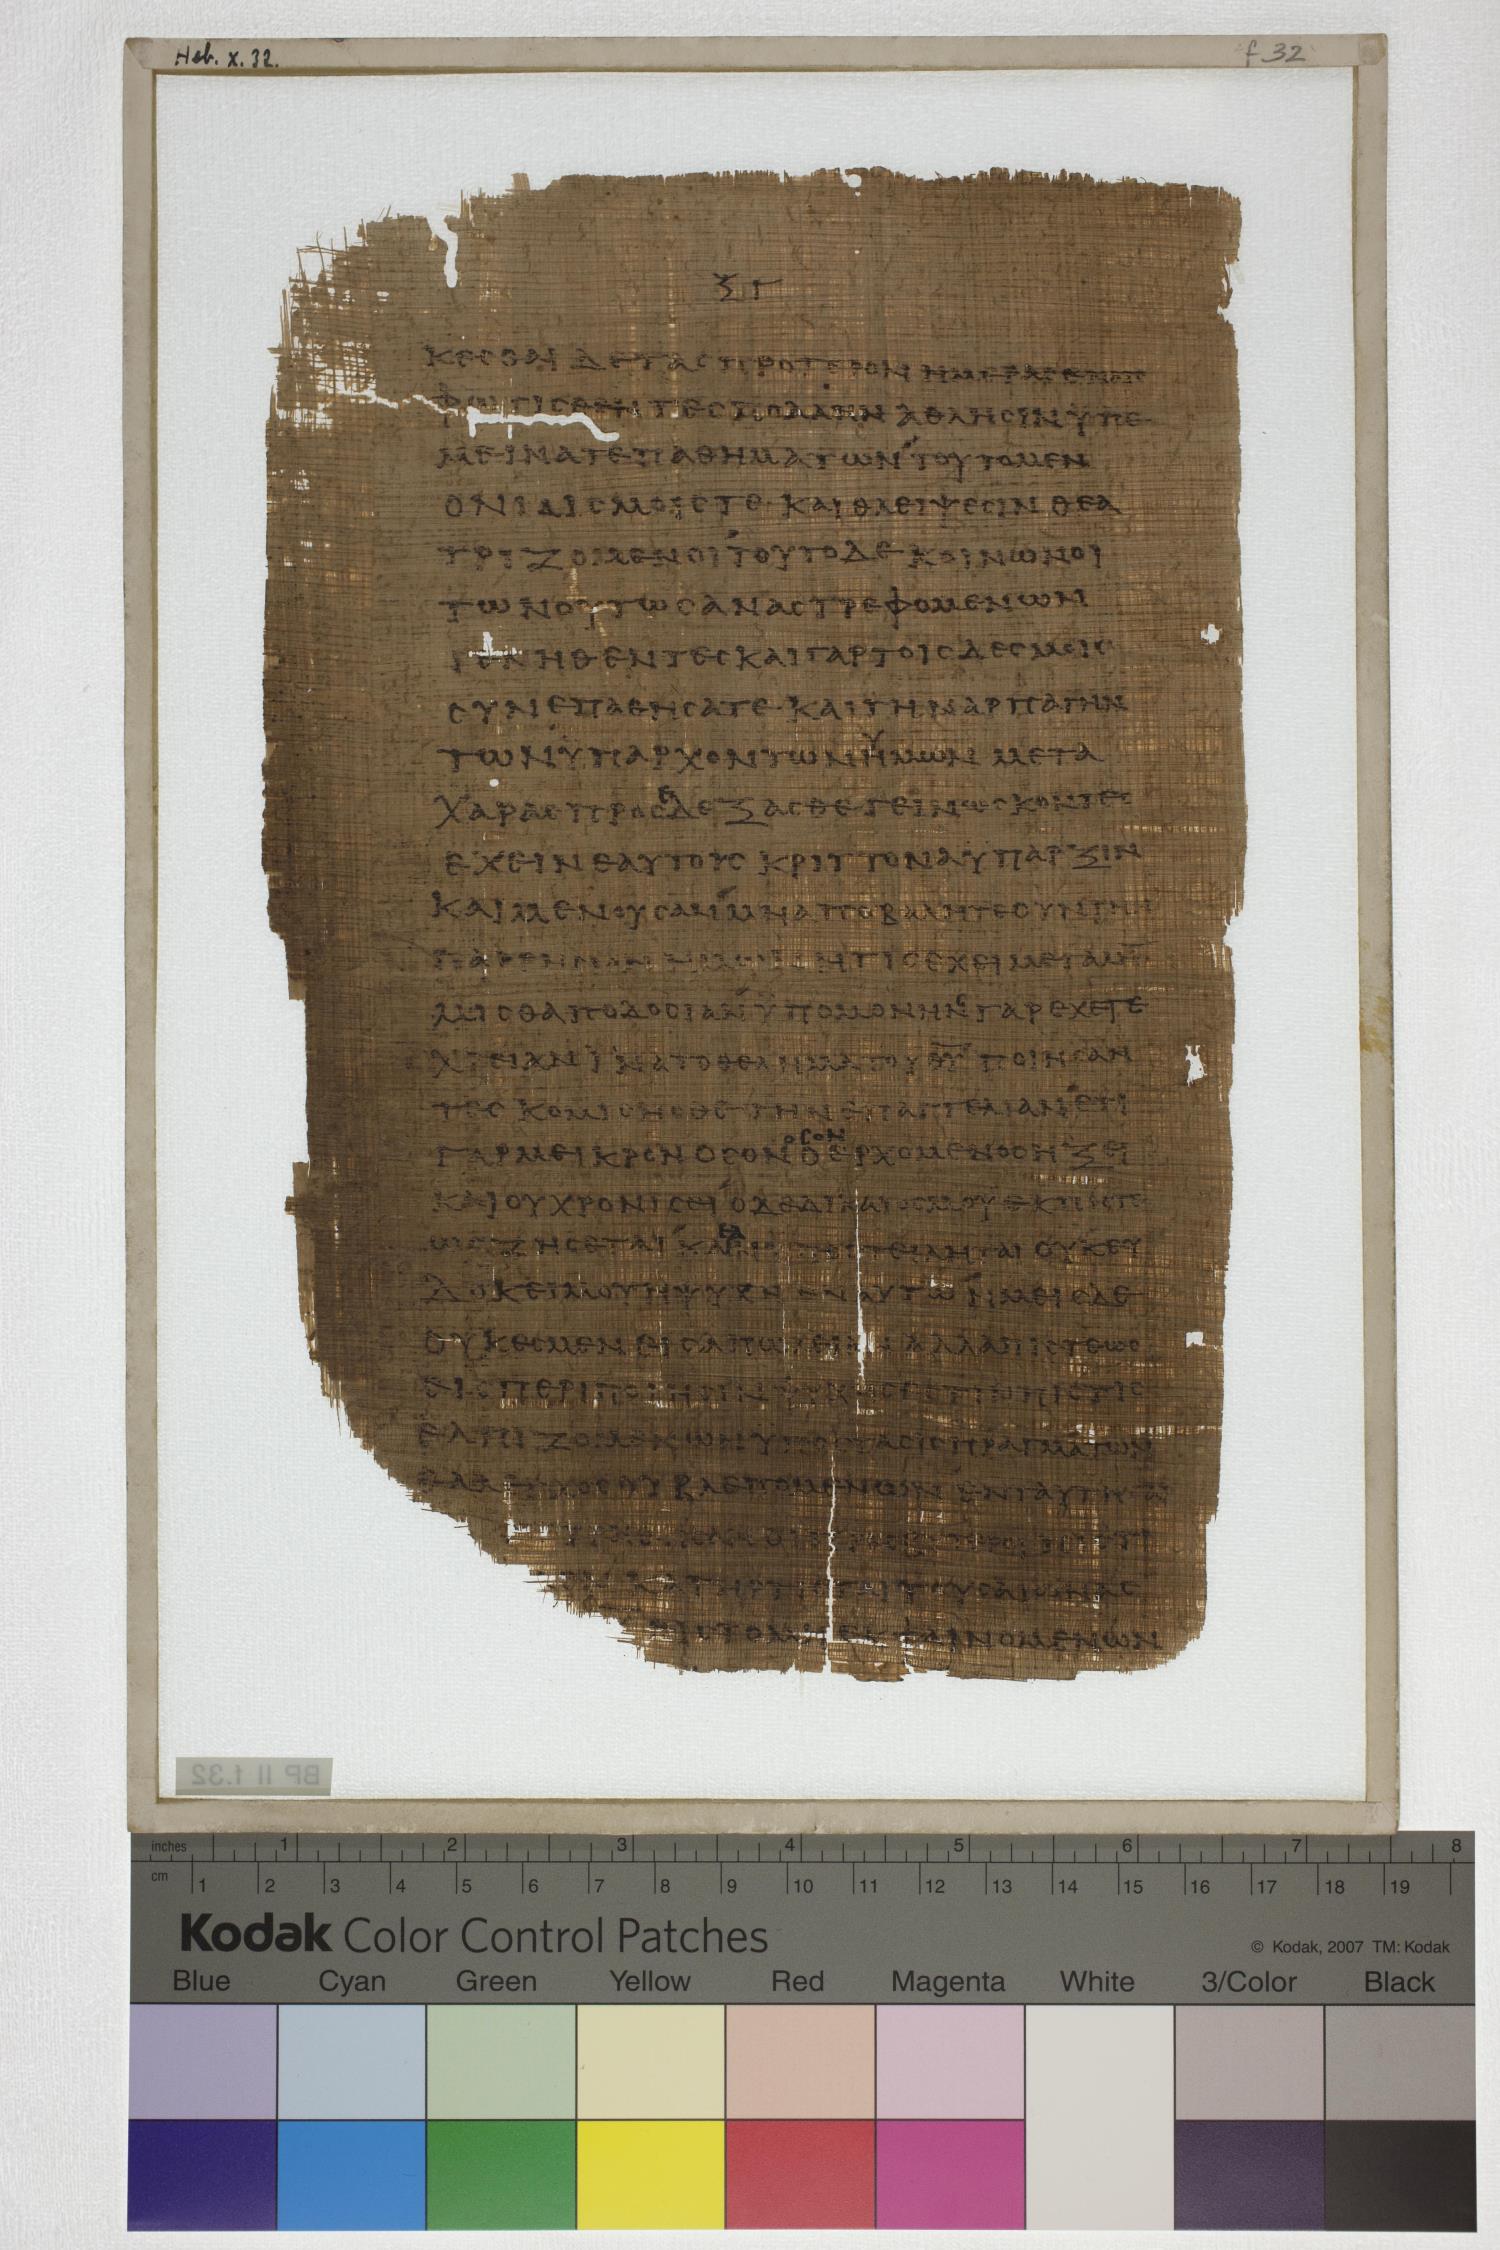 Heb. x. 32.
f 32
ξγ
κεσθαι δε τας προτερον ημερας εν αις
φωτισθεντες πολλην αθλησιν ϋπε
μεινατε παθηματων τουτο μεν
ονιδισμοις τε και θλειψεσιν θεα
τριζομενοι τουτο δε κοινωνοι
των ουτως αναστρεφομενων
γενηθεντες και γαρ τοις δεσμοις
συνεπαθησατε και την αρπαγην
των ϋπαρχοντων ϋμων μετα
χαρας προσεδεξασθε γεινωσκοντες
εχειν εαυτους κριττονα ϋπαρξιν
και μενουσαν μη αποβαλητε ουν την
παρρησιαν ητις εχει μεγαλην
μισθαποδοσιαν ϋπομονης γαρ εχετε
χρειαν ϊνα το θελημα του θυ ποιησαν
τες κομισησθε την επαγγελιαν ετι
γαρ μεικρον οσον οσον ο ερχομενος ηξει
και ου χρονισει ο δε δικαιος μου εκ πιστε
ως ζησεται και εαν ϋποστειληται ουκ ευ
δοκει μου η ψυχη εν αυτω ημεις δε
ουκ εσμεν εις απωλειαν αλλα πιστεως
εις περιποιησιν ψυχης εστιν πιστις
ελπιζομενων ϋποστασις πραγματων
ελεγχος ου βλεπομενων εν ταυτη
πρεσβυτεροι πιστι
κατηρτισται τους αιωνας
το μη εκ φαινομενων
BP II f.32
inches 1 2 3 4 5 6 7 8
cm 1 2 3 4 5 6 7 8 9 10 11 12 13 14 15 16 17 18 19
Kodak Color Control Patches
© Kodak, 2007 TM: Kodak
Blue Cyan Green Yellow Red Magenta White 3/Color Black